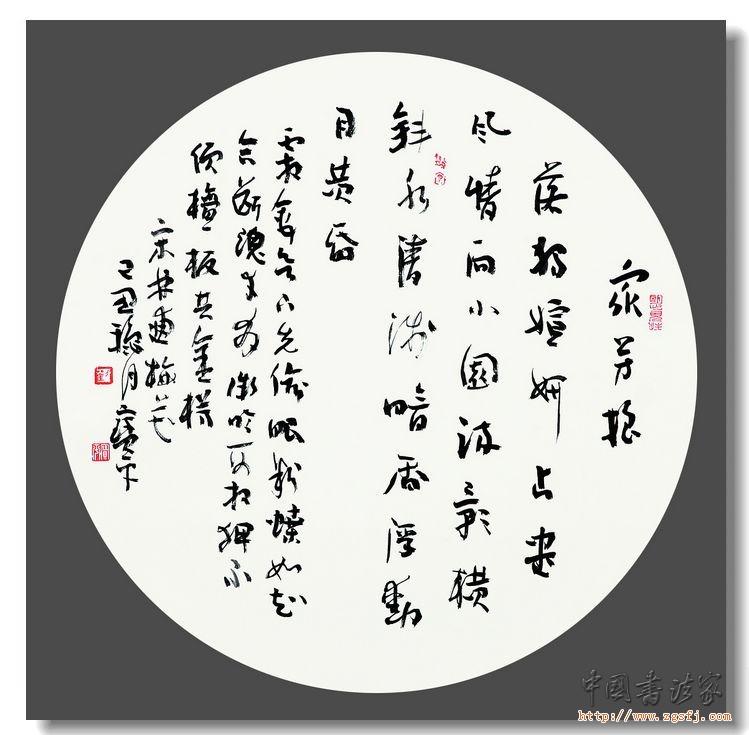 衆芳摇
落独喧妍占尽
风情向小園疏影横
斜水清浅暗香浮動
月黄昏
霜禽欲下先偷眼粉蝶如知
合断魂幸有微吟可相狎不
须檀板共金樽
宋林逋梅花
己丑
中国书法家
http://www.zgsfj.com